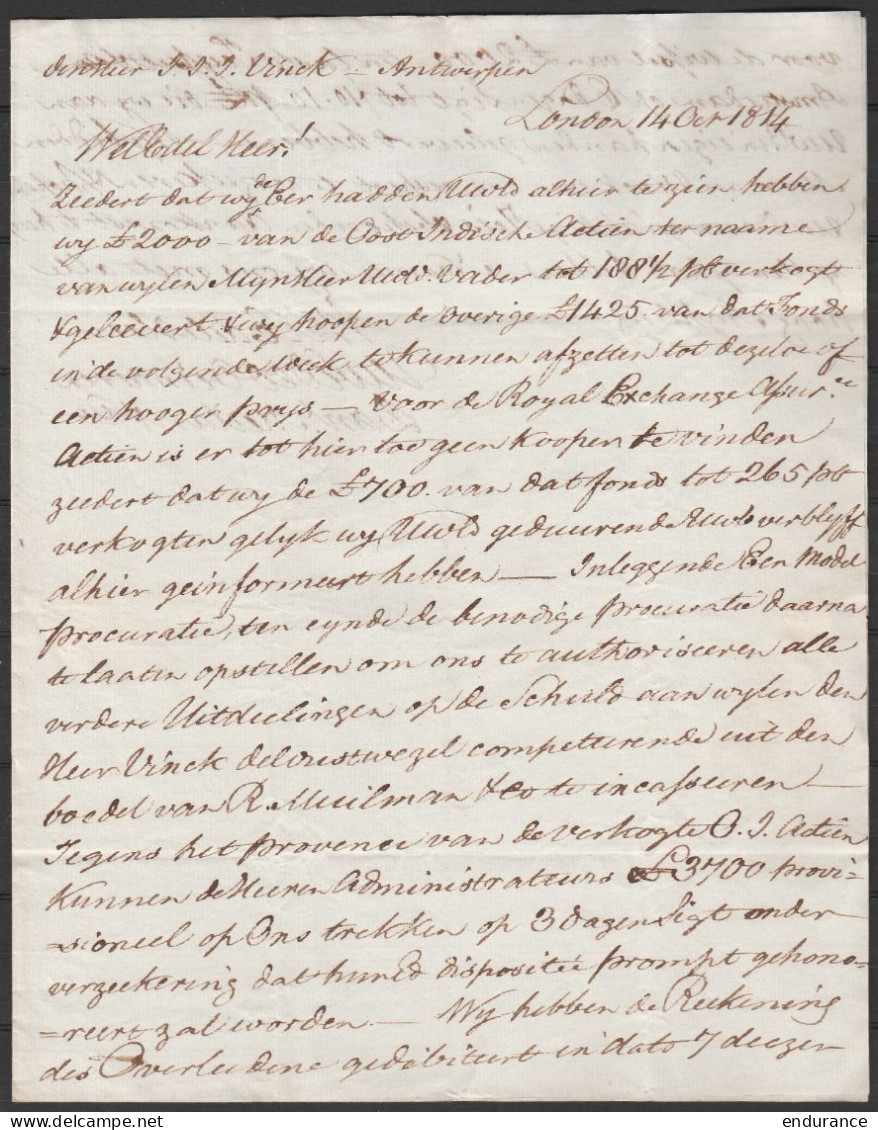 den Heer J. J. J. Vinck = Antwerpen
London 14 Oct 1814
WelEdel Heer!
Zeedert dat wy de Eer hadden UWld alhier te zien hebben
wy £2000 – van de Oost Indische Actien ter naame
van wylen MynHeer UWds. Vader tot 188 1/2 pCt verkogt
& geleevert & wy hoopen de overige £1425. van dat Fonds
in de volgende Week te kunnen afzetten tot dezelve of
een hooger prys — Voor de Royal Exchange Assur.ce
Actien is er tot hier toe geen Koopen te vinden
zeedert dat wy de £700. van dat fonds tot 265 pCt
verkogten gelyk wy UWld geduurende UWds verblyff
alhier geinformeert hebben — Inleggende Een Model
Procuratie, ten eynde de benodige procuratie daarna
te laaten opstellen om ons te authoriseeren alle
verdere Uitdeelingen op de Schuld aan wylen den
Heer Vinck de Westwezel competteerende uit den
boedel van R. Muilman & Co te incasseeren —
Tegens het Provence van de verkogte O. I. Actien
Kunnen de Heeren Administrateurs £3700 provi=
=sioneel op Ons trekken op 3 dagen Sigt onder
verzeekering dat hun Ed dispositie prompt gehono=
=reert zal worden. — Wy hebben de Reekening
des Overleedene gedebiteert in dato 7 deezer
endurance